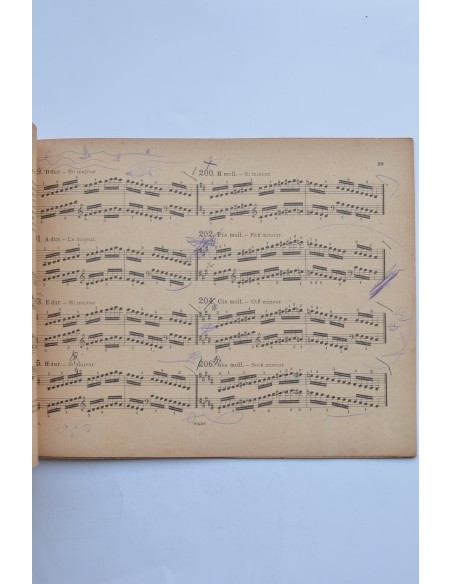 89
9. D dur. – Ré majeur.
200. H moll. – Si mineur.
1. A dur. – La majeur.
202. Fis moll. – Fa# mineur.
3. E dur. – Mi majeur.
204. Cis moll. – Ut# mineur.
5. H dur. – majeur.
206. Gis moll. – Sol# mineur.